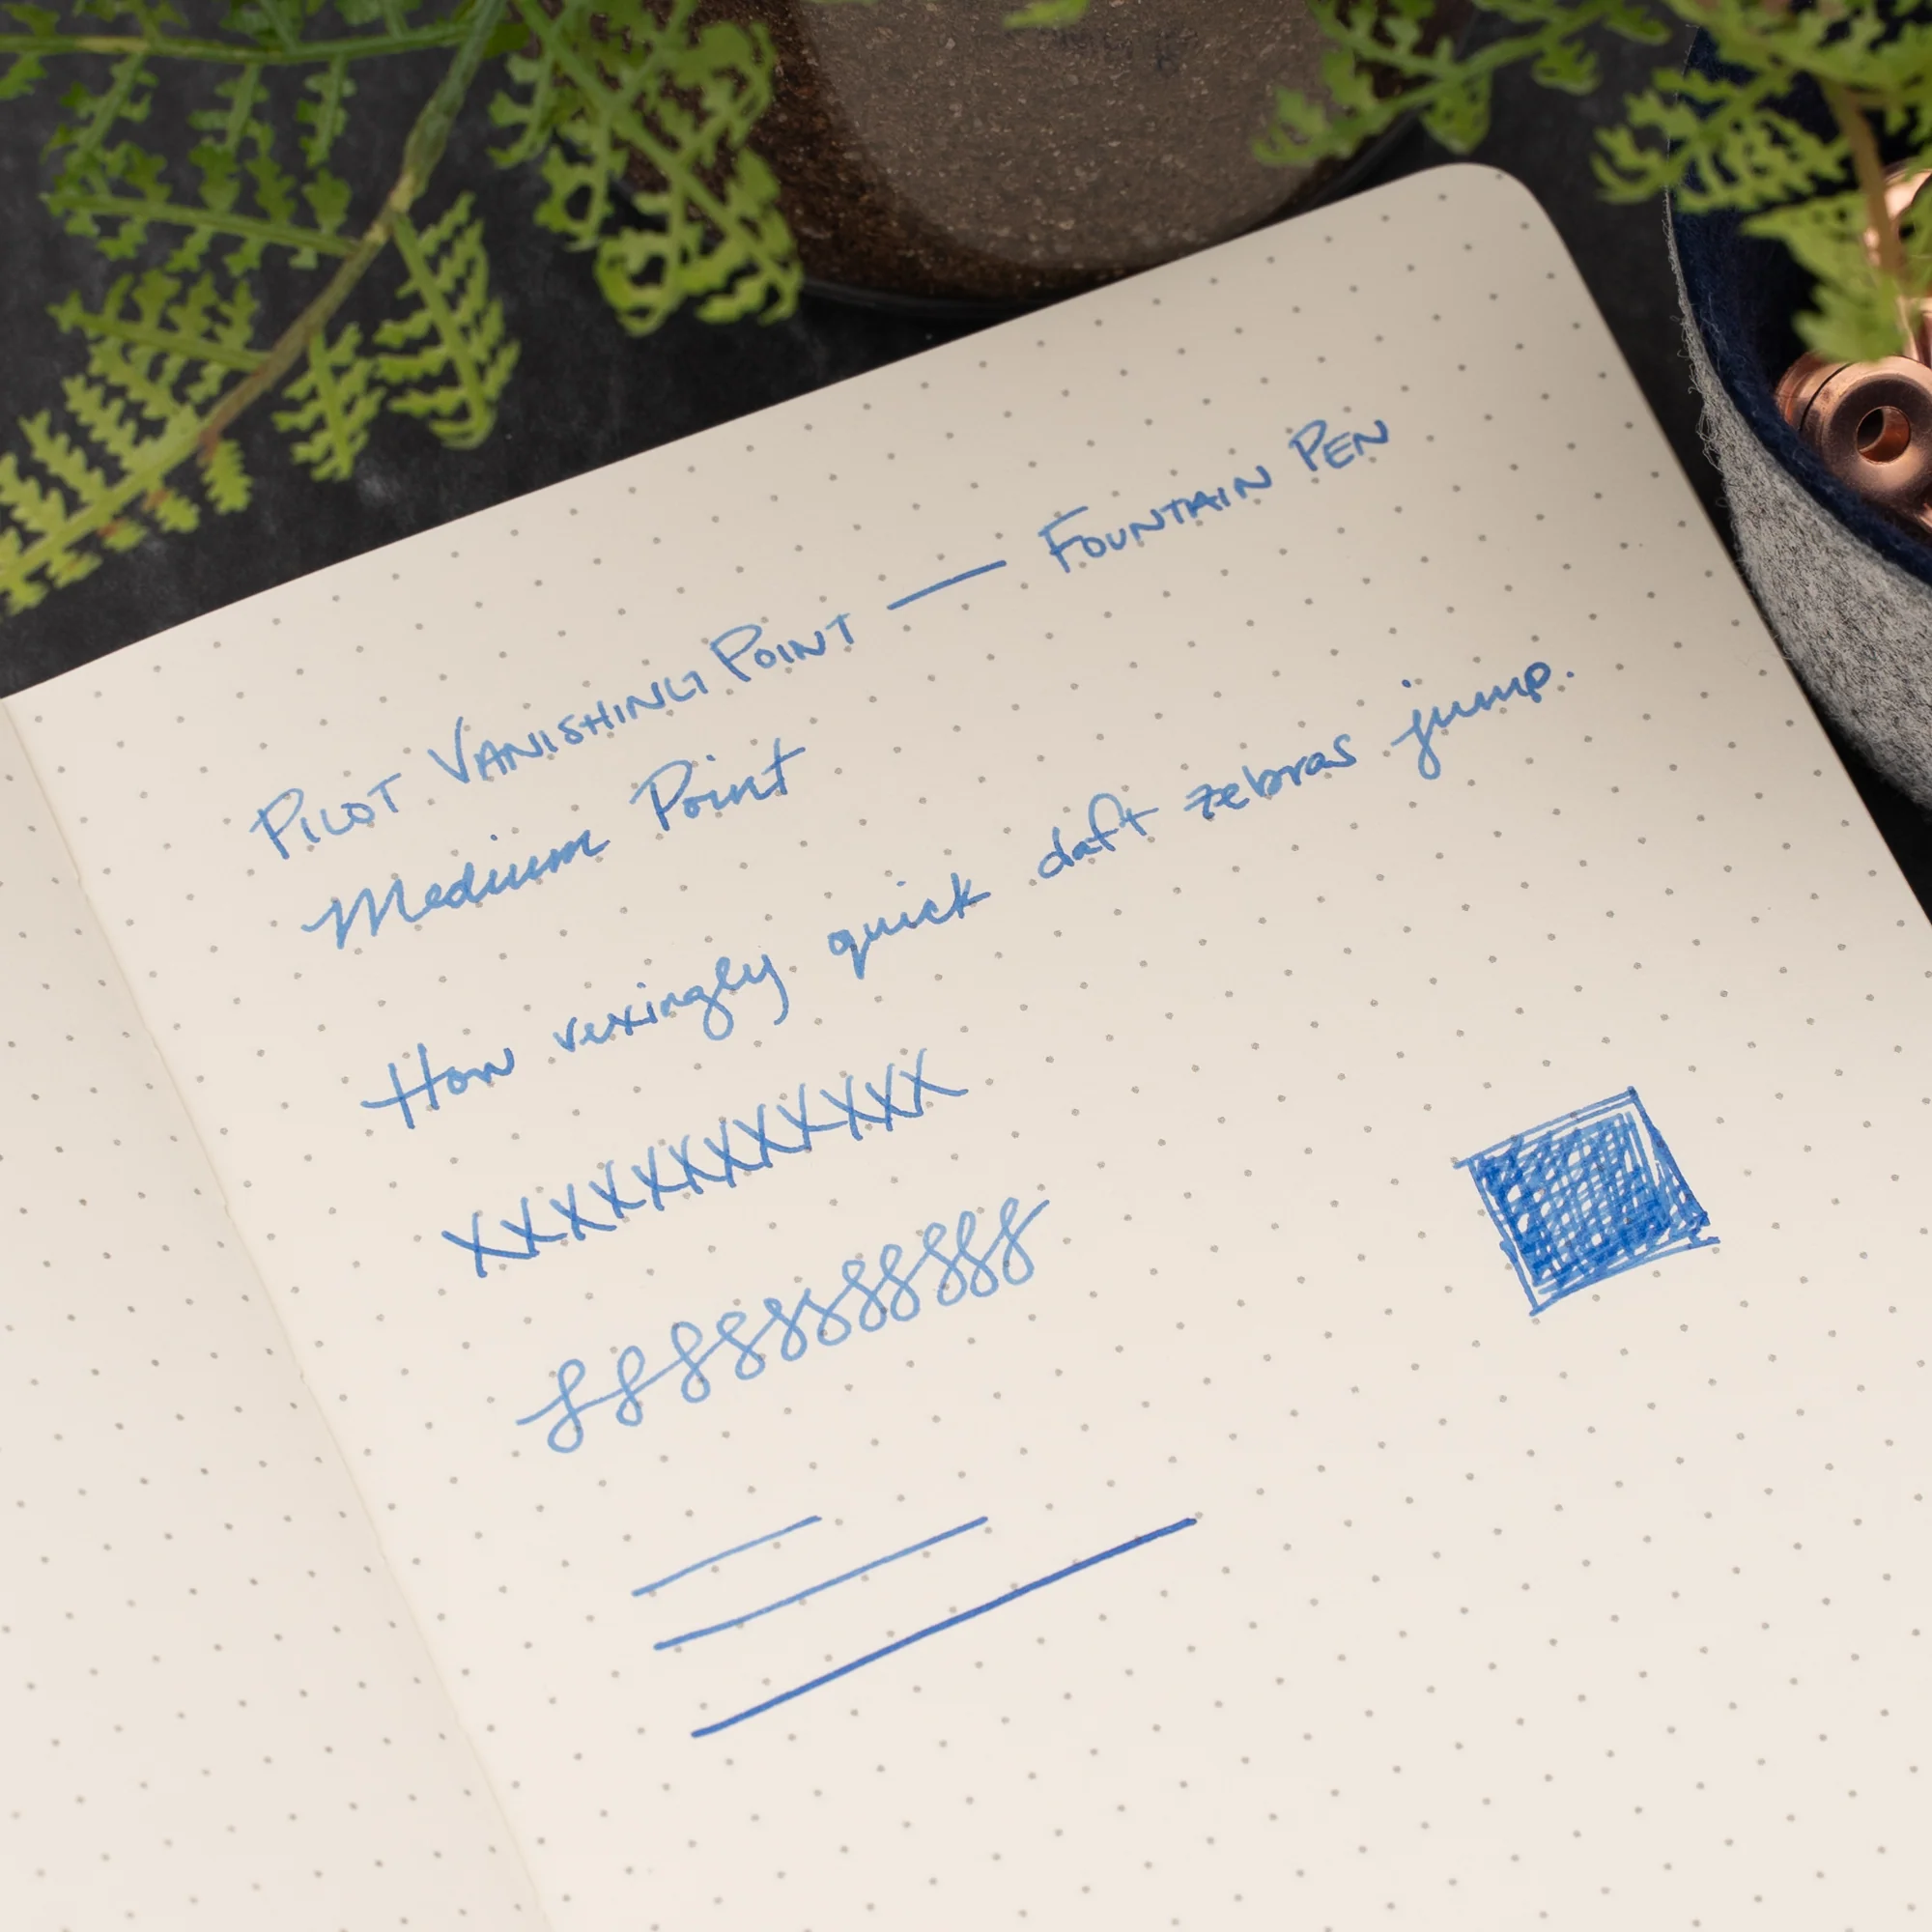 PILOT VANISHING POINT — FOUNTAIN PEN
Medium Point
How vexingly quick daft zebras jump.
XXXXXXXXXXX